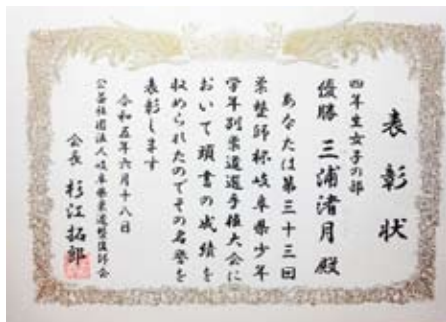 表彰状
四年生女子の部
優勝 三浦渚月 殿
あなたは第三十三回
柔整師杯岐阜県少年
学年別柔道選手権大会に
おいて頭書の成績を
収められたのでその名誉を
表彰します
令和五年六月十八日
公益社団法人岐阜県柔道整復師会
会長 杉江拓郎